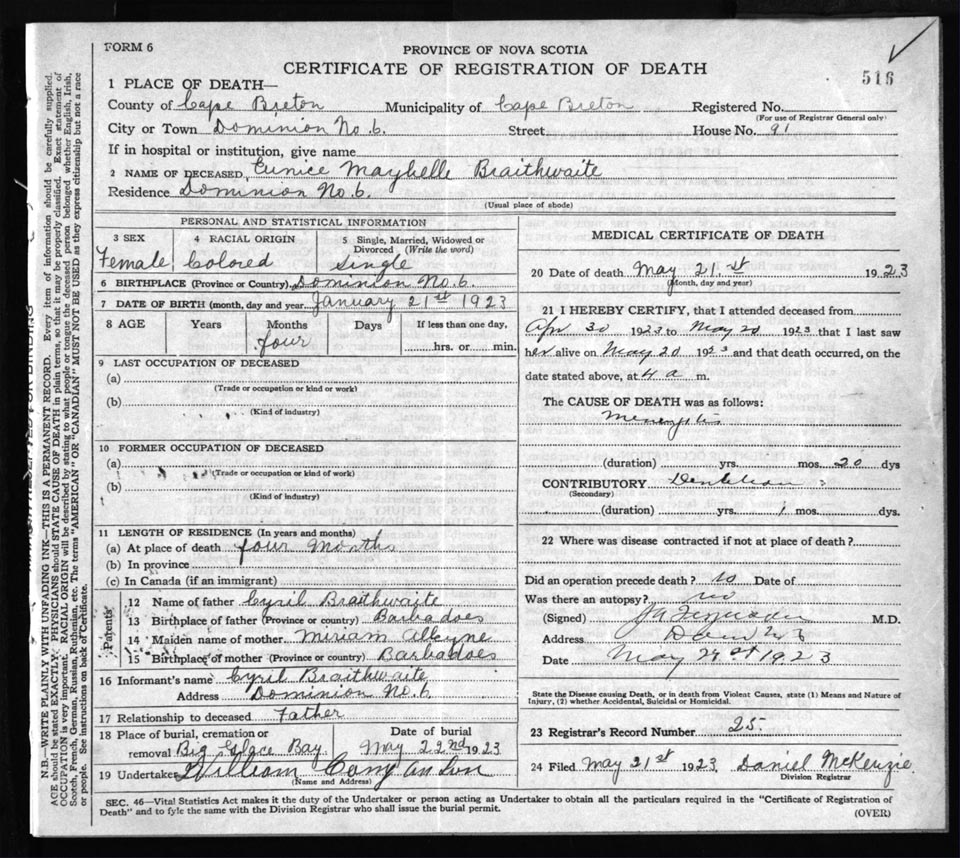 FORM 6
PROVINCE OF NOVA SCOTIA
CERTIFICATE OF REGISTRATION OF DEATH
516
1 PLACE OF DEATH—
County of Cape Breton Municipality of Cape Breton Registered No.
(For use of Registrar General only)
City or Town Dominion No. 6. Street House No. 91
If in hospital or institution, give name
2 NAME OF DECEASED Eunice Maybelle Braithwaite
Residence Dominion No. 6.
(Usual place of abode)
PERSONAL AND STATISTICAL INFORMATION
3 SEX 4 RACIAL ORIGIN 5 Single, Married, Widowed or Divorced (Write the word)
Female Colored Single
6 BIRTHPLACE (Province or Country) Dominion No. 6.
7 DATE OF BIRTH (month, day and year) January 21st 1923
8 AGE Years Months Days If less than one day,
four hrs. or min.
9 LAST OCCUPATION OF DECEASED
(a)
(Trade or occupation or kind or work)
(b)
(Kind of industry)
10 FORMER OCCUPATION OF DECEASED
(a)
(Trade or occupation or kind of work)
(b)
(Kind of industry)
11 LENGTH OF RESIDENCE (In years and months)
(a) At place of death four months
(b) In province
(c) In Canada (if an immigrant)
Parents
12 Name of father Cyril Braithwaite
13 Birthplace of father (Province or country) Barbadoes
14 Maiden name of mother Miriam Alleyne
15 Birthplace of mother (Province or country) Barbadoes
16 Informant's name Cyril Braithwaite
Address Dominion No. 6
17 Relationship to deceased Father
18 Place of burial, cremation or Date of burial
removal Big Glace Bay May 22nd 1923
19 Undertaker William
(Name and Address)
MEDICAL CERTIFICATE OF DEATH
20 Date of death May 21.st 1923
(Month, day and year)
21 I HEREBY CERTIFY, that I attended deceased from
Apr 30 1923 to May 20 1923 that I last saw
her alive on May 20 1923 and that death occurred, on the
date stated above, at 4 a m.
The CAUSE OF DEATH was as follows:
(duration) yrs. mos. 20 dys
CONTRIBUTORY Dentition
(Secondary)
(duration) yrs. 1 mos. dys.
22 Where was disease contracted if not at place of death?
Did an operation precede death? no Date of
Was there an autopsy? no
(Signed) M.D.
Address
Date May 21st 1923
State the Disease causing Death, or in death from Violent Causes, state (1) Means and Nature of
Injury, (2) whether Accidental, Suicidal or Homicidal.
23 Registrar's Record Number 25.
24 Filed May 21st 1923 Daniel McKenzie
Division Registrar
SEC. 46—Vital Statistics Act makes it the duty of the Undertaker or person acting as Undertaker to obtain all the particulars required in the "Certificate of Registration of
Death" and to fyle the same with the Division Registrar who shall issue the burial permit.
(OVER)
N.B.—WRITE PLAINLY, WITH UNFADING INK—THIS IS A PERMANENT RECORD. Every item of information should be carefully supplied.
AGE should be stated EXACTLY. PHYSICIANS should STATE CAUSE OF DEATH in plain terms, so that it may be properly classified. Exact statement of
OCCUPATION is very important. RACIAL ORIGIN will be described by stating to what people or tongue the deceased person belonged whether English, Irish,
Scotch, French, German, Russian, Ruthenian, etc. The terms "AMERICAN" OR "CANADIAN" MUST NOT BE USED as they express citizenship but not a race
or people. See instructions on back of Certificate.